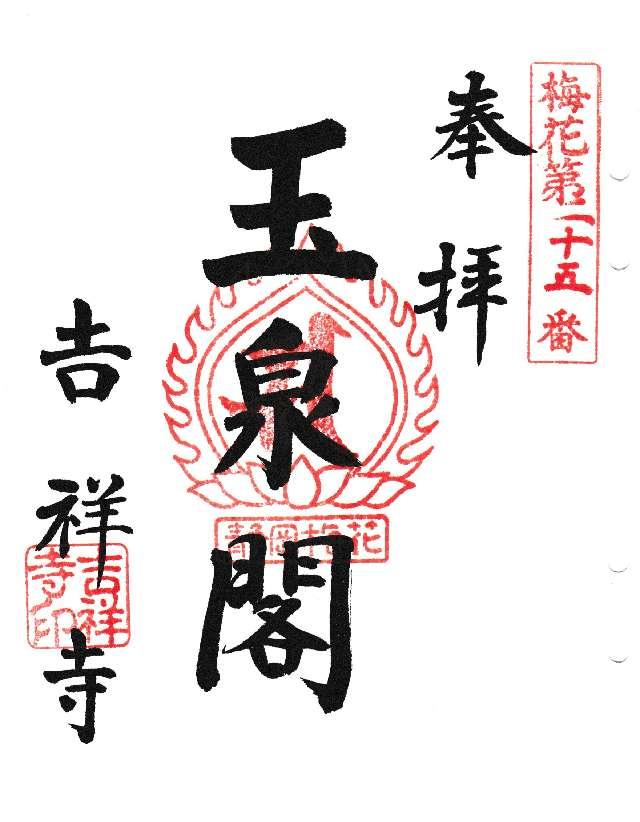 梅花第二十五番
奉拝
玉泉閣
静岡梅花
吉祥寺
吉祥寺印